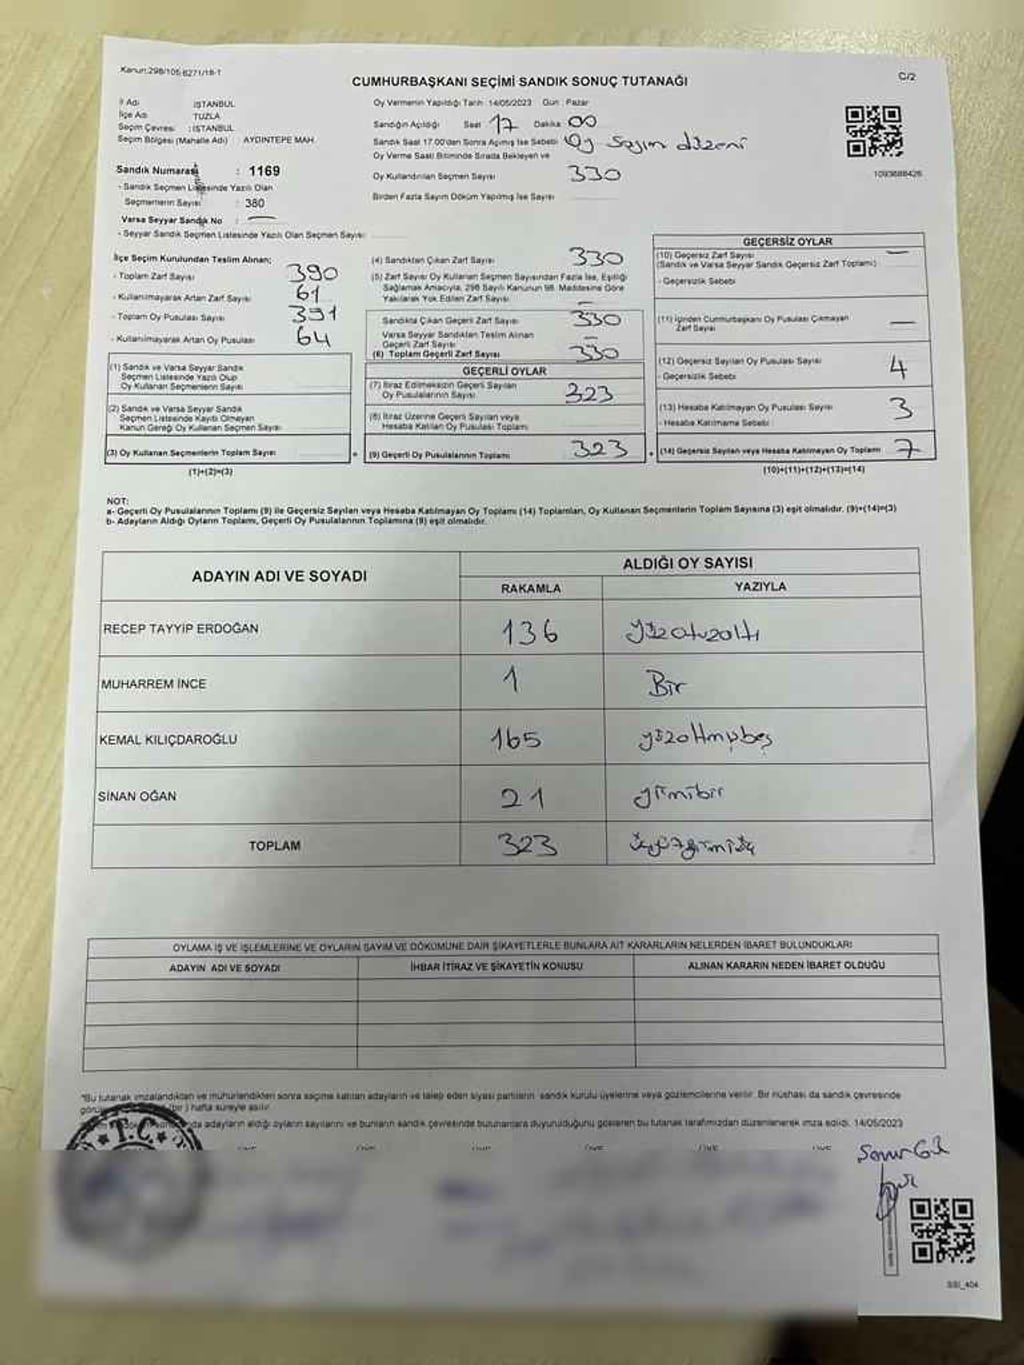 Kanun:298/105,6271/18-1
C/2
CUMHURBAŞKANI SEÇİMİ SANDIK SONUÇ TUTANAĞI
İl Adı : İSTANBUL
İlçe Adı : TUZLA
Seçim Çevresi : İSTANBUL
Seçim Bölgesi (Mahalle Adı) : AYDINTEPE MAH.
Sandık Numarası : 1169
- Sandık Seçmen Listesinde Yazılı Olan
Seçmenlerin Sayısı : 380
Varsa Seyyar Sandık No : —
- Seyyar Sandık Seçmen Listesinde Yazılı Olan Seçmen Sayısı
Oy Vermenin Yapıldığı Tarih : 14/05/2023 Gün : Pazar
Sandığın Açıldığı Saat 17 Dakika 00
Sandık Saat 17.00'den Sonra Açılmış İse Sebebi Oy Sayım düzeni
Oy Verme Saati Bitiminde Sırada Bekleyen ve
Oy Kullandırılan Seçmen Sayısı 330
Birden Fazla Sayım Döküm Yapılmış İse Sayısı
1093688426
İlçe Seçim Kurulundan Teslim Alınan;
- Toplam Zarf Sayısı 390
- Kullanılmayarak Artan Zarf Sayısı 61
- Toplam Oy Pusulası Sayısı 391
- Kullanılmayarak Artan Oy Pusulası 64
(1) Sandık ve Varsa Seyyar Sandık
Seçmen Listesinde Yazılı Olup
Oy Kullanan Seçmenlerin Sayısı
(2) Sandık ve Varsa Seyyar Sandık
Seçmen Listesinde Kayıtlı Olmayan
Kanun Gereği Oy Kullanan Seçmen Sayısı
(3) Oy Kullanan Seçmenlerin Toplam Sayısı
(1)+(2)=(3)
(4) Sandıktan Çıkan Zarf Sayısı 330
(5) Zarf Sayısı Oy Kullanan Seçmen Sayısından Fazla İse, Eşitliği
Sağlamak Amacıyla, 298 Sayılı Kanunun 98. Maddesine Göre
Yakılarak Yok Edilen Zarf Sayısı —
Sandıkta Çıkan Geçerli Zarf Sayısı 330
Varsa Seyyar Sandıktan Teslim Alınan
Geçerli Zarf Sayısı —
(6) Toplam Geçerli Zarf Sayısı 330
GEÇERLİ OYLAR
(7) İtiraz Edilmeksizin Geçerli Sayılan
Oy Pusulalarının Sayısı 323
(8) İtiraz Üzerine Geçerli Sayılan veya
Hesaba Katılan Oy Pusulası Toplamı
(9) Geçerli Oy Pusulalarının Toplamı 323
GEÇERSİZ OYLAR
(10) Geçersiz Zarf Sayısı —
(Sandık ve Varsa Seyyar Sandık Geçersiz Zarf Toplamı)
- Geçersizlik Sebebi
(11) İçinden Cumhurbaşkanı Oy Pusulası Çıkmayan
Zarf Sayısı —
(12) Geçersiz Sayılan Oy Pusulası Sayısı 4
- Geçersizlik Sebebi
(13) Hesaba Katılmayan Oy Pusulası Sayısı 3
- Hesaba Katılmama Sebebi
(14) Geçersiz Sayılan veya Hesaba Katılmayan Oy Toplamı 7
(10)+(11)+(12)+(13)=(14)
NOT:
a- Geçerli Oy Pusulalarının Toplamı (9) ile Geçersiz Sayılan veya Hesaba Katılmayan Oy Toplamı (14) Toplamları, Oy Kullanan Seçmenlerin Toplam Sayısına (3) eşit olmalıdır. (9)+(14)=(3)
b- Adayların Aldığı Oyların Toplamı, Geçerli Oy Pusulalarının Toplamına (9) eşit olmalıdır.
ADAYIN ADI VE SOYADI
ALDIĞI OY SAYISI
RAKAMLA YAZIYLA
RECEP TAYYİP ERDOĞAN 136 yüzotuzaltı
MUHARREM İNCE 1 Bir
KEMAL KILIÇDAROĞLU 165 yüzaltmışbeş
SİNAN OĞAN 21 yirmibir
TOPLAM 323 üçyüzyirmiüç
OYLAMA İŞ VE İŞLEMLERİNE VE OYLARIN SAYIM VE DÖKÜMÜNE DAİR ŞİKAYETLERLE BUNLARA AİT KARARLARIN NELERDEN İBARET BULUNDUKLARI
ADAYIN ADI VE SOYADI İHBAR İTİRAZ VE ŞİKAYETİN KONUSU ALINAN KARARIN NEDEN İBARET OLDUĞU
*Bu tutanak imzalandıktan ve mühürlendikten sonra seçime katılan adayların ve talep eden siyasi partilerin sandık kurulu üyelerine veya gözlemcilerine verilir. Bir nüshası da sandık çevresinde
(bir) hafta süreyle asılır.
adayların aldığı oyların sayılarını ve bunların sandık çevresinde bulunanlara duyurulduğunu gösteren bu tutanak tarafımızdan düzenlenerek imza edildi. 14/05/2023
T.C.
SSİ_404